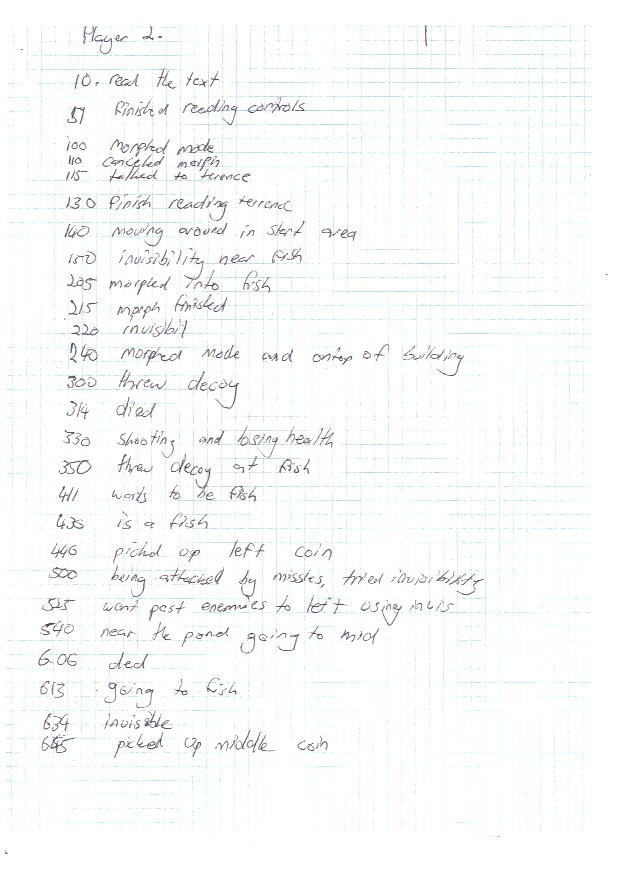 Player 2. 1
10. read the text
51 finished reading controls
100 Morphed mode
110 canceled morph
115 talked to terence
130 finish reading terrence
140 moving around in start area
150 invisibility near fish
205 morphed into fish
215 morph finished
220 invisibil
240 morphed mode and ontop of building
300 threw decoy
314 died
330 shooting and losing health
350 threw decoy at fish
411 wants to be fish
435 is a fish
446 pickd up left coin
500 being attacked by missles, tried invisibility
525 want past enemies to left using invis
540 near the pond going to mid
6.06 ded
613 going to fish
634 invisible
645 picked up middle coin